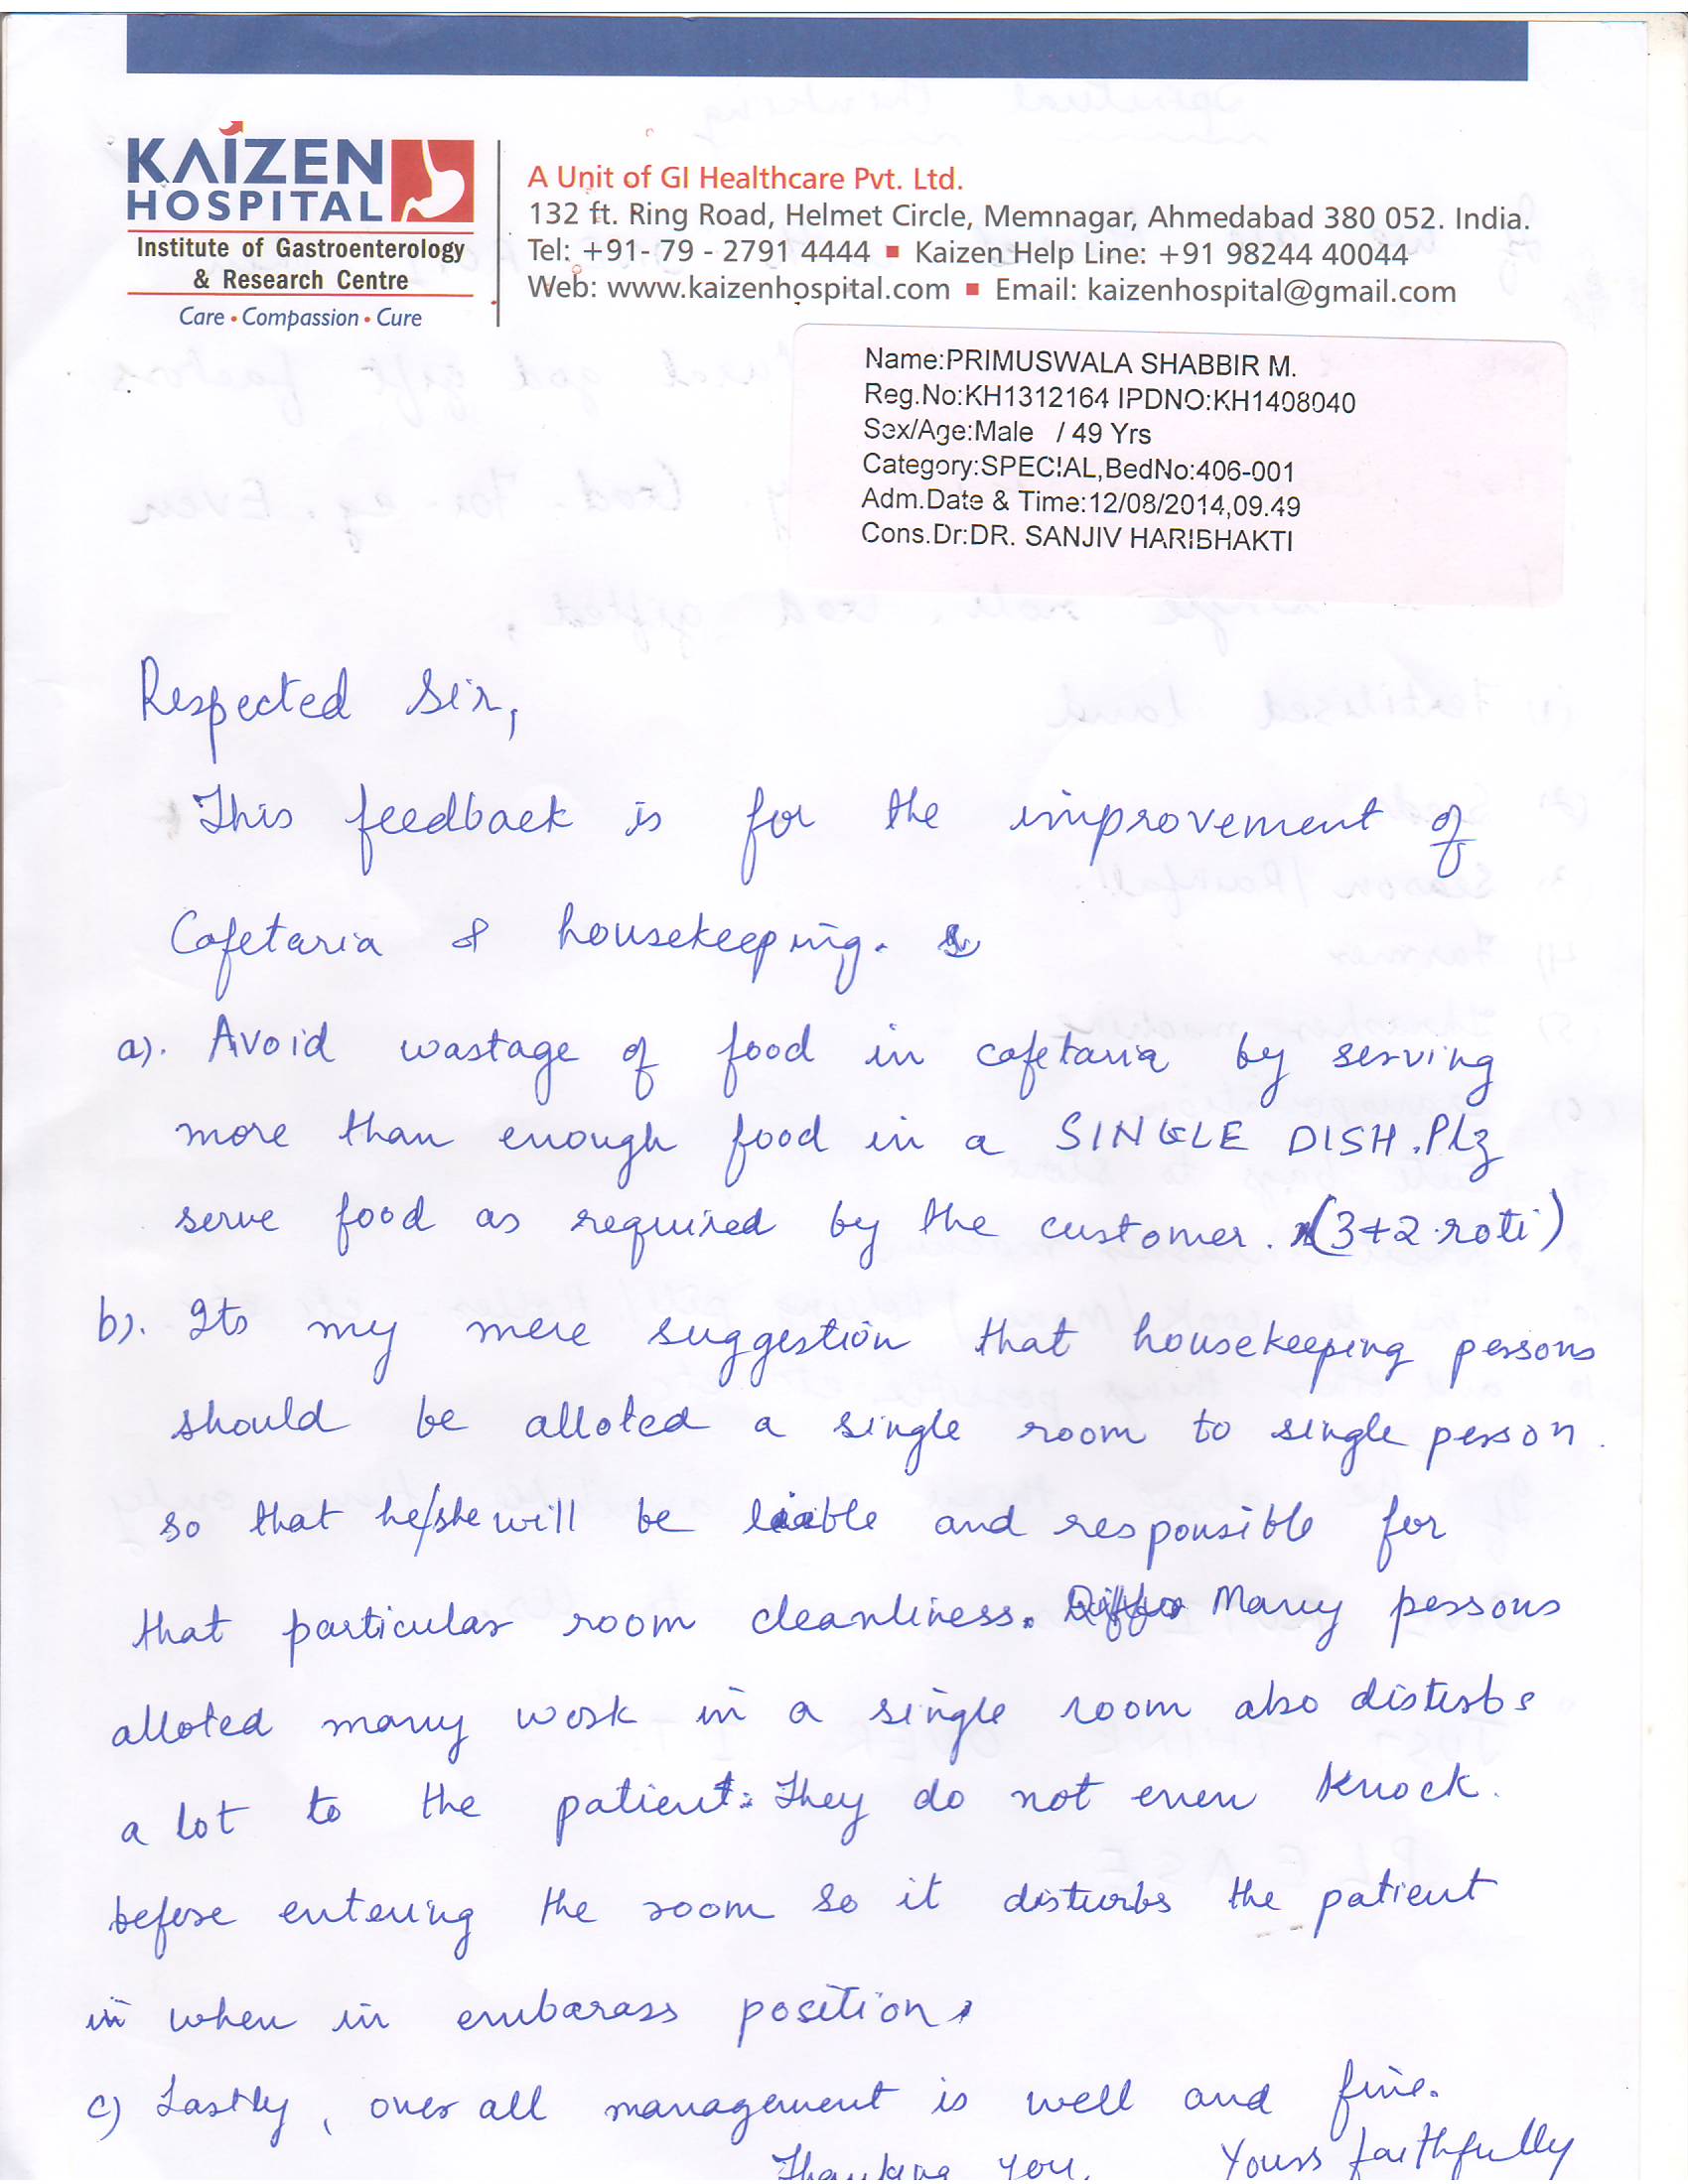 KAIZEN
HOSPITAL
Institute of Gastroenterology
& Research Centre
Care • Compassion • Cure
A Unit of GI Healthcare Pvt. Ltd.
132 ft. Ring Road, Helmet Circle, Memnagar, Ahmedabad 380 052. India.
Tel: +91- 79 - 2791 4444 ▪ Kaizen Help Line: +91 98244 40044
Web: www.kaizenhospital.com ▪ Email: kaizenhospital@gmail.com
Name:PRIMUSWALA SHABBIR M.
Reg.No:KH1312164 IPDNO:KH1408040
Sex/Age:Male / 49 Yrs
Category:SPECIAL,BedNo:406-001
Adm.Date & Time:12/08/2014,09.49
Cons.Dr:DR. SANJIV HARIBHAKTI
Respected Sir,
This feedback is for the improvement of
Cafetaria & housekeeping.
a). Avoid wastage of food in cafetaria by serving
more than enough food in a SINGLE DISH. Plz
serve food as required by the customer. (3+2 roti)
b). Its my mere suggestion that housekeeping persons
should be alloted a single room to single person.
so that he/she will be liable and responsible for
that particular room cleanliness. Many persons
alloted many work in a single room also disturbs
a lot to the patient. They do not even knock.
before entering the room so it disturbs the patient
in when in embarass position.
c) Lastly, over all management is well and fine.
Thanking you. Yours faithfully